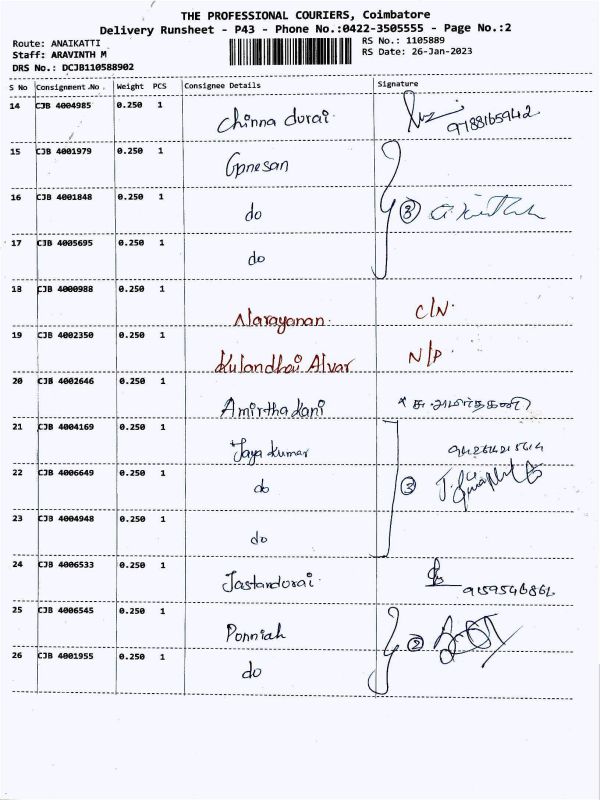 THE PROFESSIONAL COURIERS, Coimbatore
Delivery Runsheet - P43 - Phone No.:0422-3505555 - Page No.:2
Route: ANAIKATTI
Staff: ARAVINTH M
DRS No.: DCJB110588902
RS No.: 1105889
RS Date: 26-Jan-2023
S No Consignment.No. Weight PCS Consignee Details Signature
14 CJB 4004985 0.250 1 Chinna durai 9788165942
15 CJB 4001979 0.250 1 Ganesan
16 CJB 4001848 0.250 1 do 3
17 CJB 4005695 0.250 1 do
18 CJB 4000988 0.250 1 Narayanan. C/N.
19 CJB 4002350 0.250 1 Kulandhai Alvar N/P.
20 CJB 4002646 0.250 1 Amirtha kani
21 CJB 4004169 0.250 1 Jaya kumar
22 CJB 4006649 0.250 1 do 3
23 CJB 4004948 0.250 1 do
24 CJB 4006533 0.250 1 9159546862
25 CJB 4006545 0.250 1 Ponniah 2
26 CJB 4001955 0.250 1 do